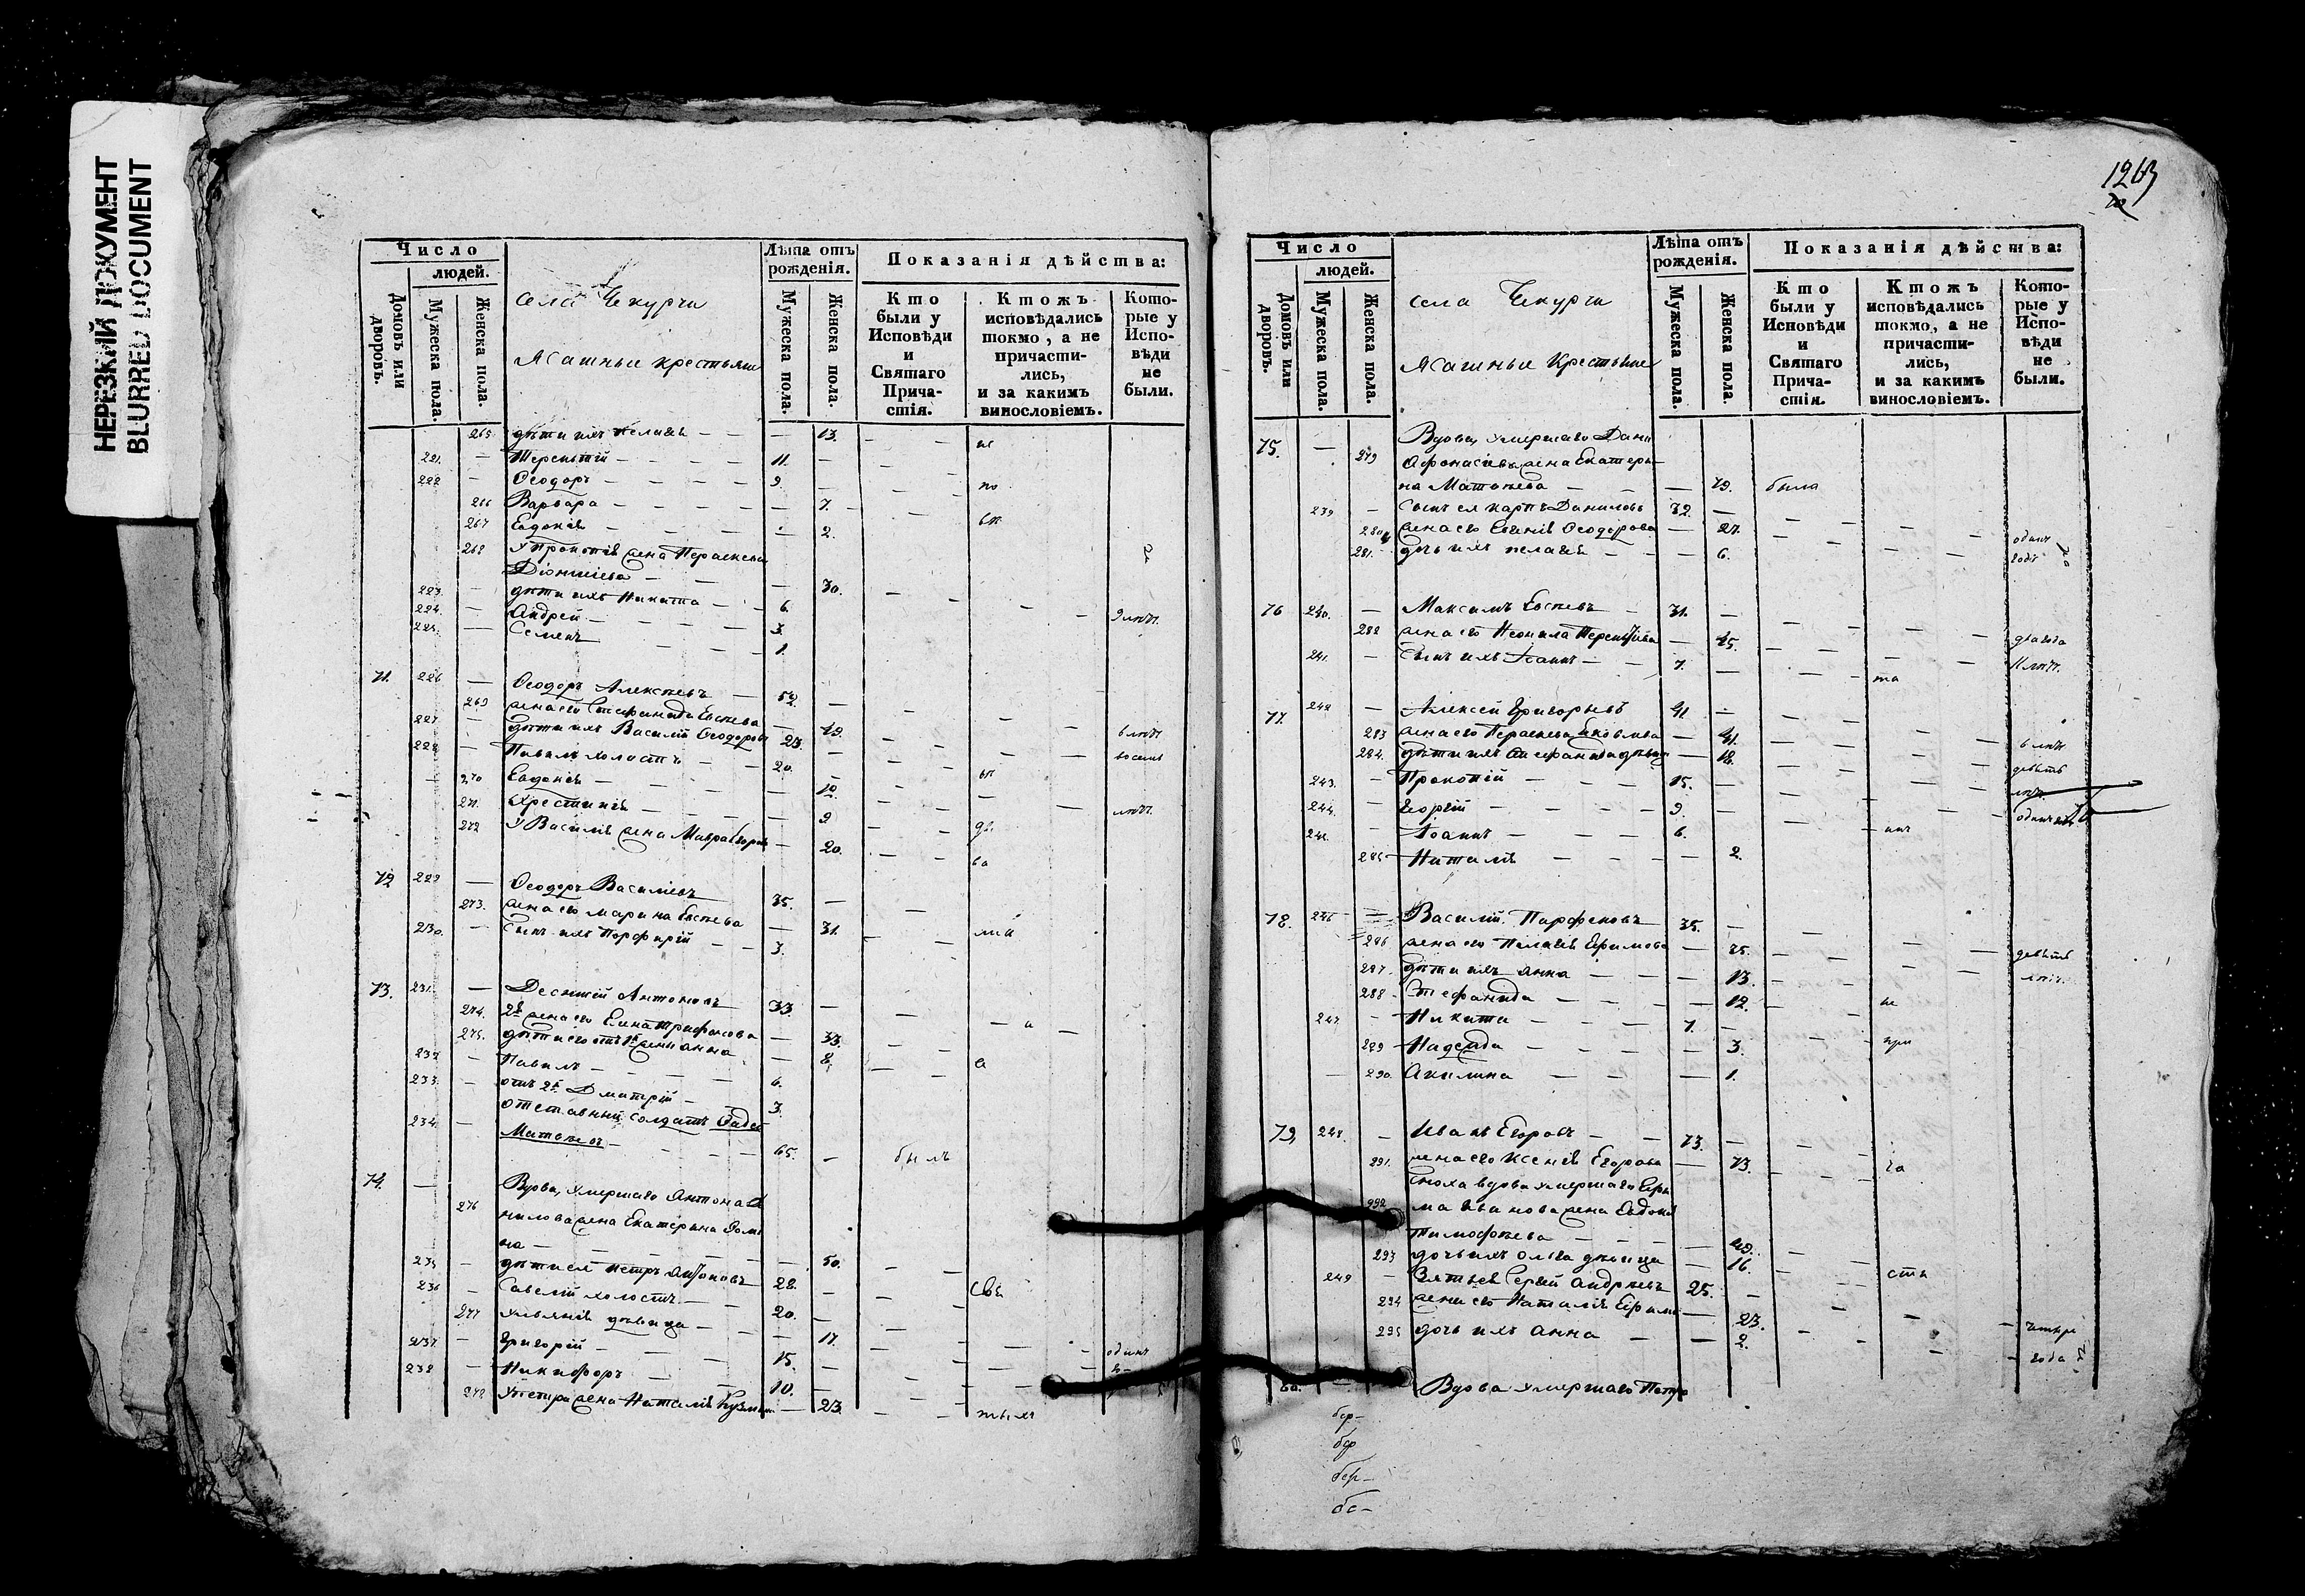 НЕРЕЗКИЙ ДОКУМЕНТ
BLURRED DOCUMENT
Число
людей.
Домовъ или дворовъ.
Мужеска пола.
Женска пола.
села Чекурчи
Ясашные крестьяне
Лѣта отъ рожденія.
Мужеска пола.
Женска пола.
Показанія дѣйства:
Кто были у Исповѣди и Святаго Причастія.
Ктожъ исповѣдались токмо, а не причастились, и за какимъ винословіемъ.
Которые у Исповѣди не были.
265 дѣти ихъ Пелагея — 13. не
221. Терентій 11.
222 Ѳеодоръ 9. по
266 Варвара 7.
267 Евдокія 2.
268 У Прокопія жена Параскева
Діонисіева 30.
223. дѣти ихъ Никита 6. 9 лѣтъ
224. Андрей 3.
225. Семенъ 1.
71. 226 Ѳеодоръ Алексѣевъ 52.
269 жена его Стефанида Евсѣева 49. 6 лѣтъ
227. дѣти ихъ Василій Ѳеодоровъ 23. восемь
228 Павелъ холостъ 20.
270 Евдокія 10 лѣтъ
271. Христинія 9
272 У Василія жена Мавра Егорова 20.
72 229 Ѳеодоръ Васильевъ 35.
273. жена его Марина Евсѣева 31.
230. Сынъ ихъ Порфирій 3.
73. 231. Антоновъ 33.
274. 2я жена его Елена Трифонова 33.
275. дѣти его отъ 1й жены Анна 8.
232 Павелъ 6.
233. отъ 2й Дмитрій 3.
234. отставный солдатъ Фадей
Матвѣевъ 65. былъ
74. Вдова, умершаго Антона Да
276 нилова жена Екатерина Фоми
на 50.
235 дѣти ея Петръ Антоновъ 28.
236 Савелій холостъ 20.
277 Ульянія дѣвица 17.
237. Григорій 15. одинъ
238 Никифоръ 10.
278 У Петра жена Наталія Кузмина 23.
1263
Число
людей.
Домовъ или дворовъ.
Мужеска пола.
Женска пола.
села Чекурчи
Ясашные Крестьяне
Лѣта отъ рожденія.
Мужеска пола.
Женска пола.
Показанія дѣйства:
Кто были у Исповѣди и Святаго Причастія.
Ктожъ исповѣдались токмо, а не причастились, и за какимъ винословіемъ.
Которые у Исповѣди не были.
75. Вдова, умершаго Дани
279 Афонасьева жена Екатери
на Матвѣева 79. была
239 Сынъ ея Карпъ Даниловъ 32.
280 жена его Евгенія Ѳеодорова 27. одинъ
281. дочь ихъ Пелагея 6. годъ
76 240. Максимъ Евсѣевъ 31.
282 жена его Неонила Терентіева 45. два года
241. Сынъ ихъ Іоаннъ 7. 11 лѣтъ.
77. 242 Алексѣй Григорьевъ 41
283 жена его Параскева Яковлева 41. 6 лѣтъ
284. дѣти ихъ Стефанида дѣвица 18. девять
243. Прокопій 15. лѣтъ
244. Георгій 9. одинъ годъ
245 Іоаннъ 6.
285 Наталія 2.
78. 246 Василій Парфеновъ 35.
286 жена его Пелагія Ефимова 35. девять
287. дѣти ихъ Анна 13. лѣтъ.
288 Стефанида 12. не
247. Никита 7.
289 Надежда 3. при
290. Акилина 1.
79. 248. Иванъ Егоровъ 73.
291. жена его Ксенія Егорова 73. ча
Сноха вдова умершаго Ефи
292 ма Иванова жена Евдокія
Тимофѣева 49.
293 дочь ихъ Ольга дѣвица 16. сти
249 Зять ея Сергій Андреевъ 25.
294 жена его Наталія Ефимова 23. четыре
295 дочь ихъ Анна 2. года
80. Вдова умершаго Петра